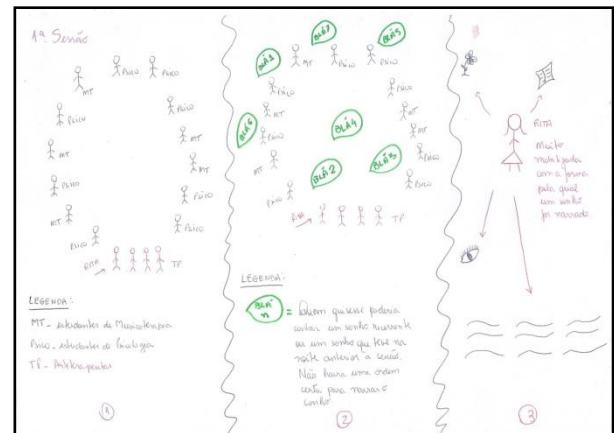 1ª Sessão
MT
PSICO
PSICO
PSICO
PSICO
MT
MT
MT
PSICO
PSICO
MT
PSICO
PSICO
RITA
TP
LEGENDA:
MT - estudantes de Musicoterapia
PSICO - estudantes de Psicologia
TP - Arteterapeutas
1
BLÁ1
BLÁ5
MT
PSICO
PSICO
PSICO
PSICO
MT
MT
BLÁ6
PSICO
BLÁ4
MT
MT
BLÁ2
BLÁ3
PSICO
PSICO
PSICO
RITA
TP
LEGENDA:
BLÁ
n
= Quem quisesse poderia
contar um sonho recorrente
ou um sonho que teve na
noite anterior a sessão.
Não havia uma ordem
certa para narrar o
sonho.
2
RITA
Muito
mobilizada
com a forma
pela qual
um sonho
foi narrado
3